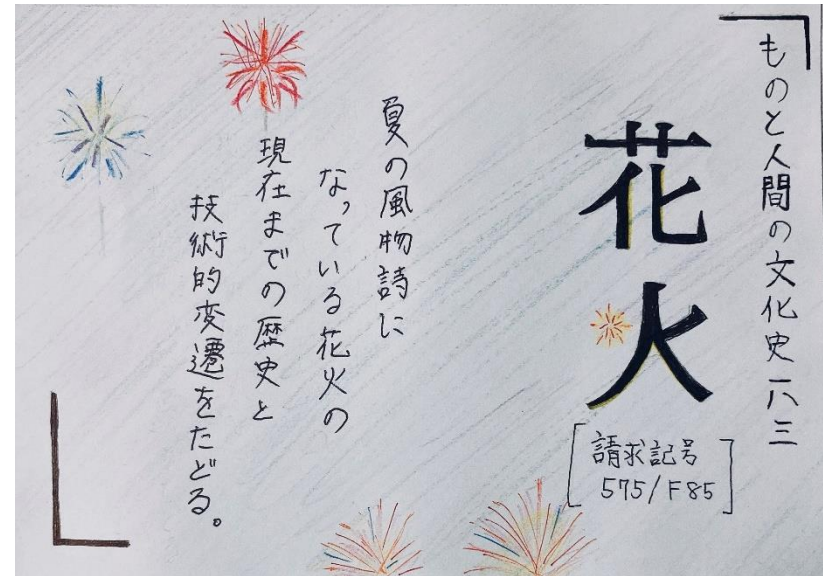 ものと人間の文化史 一八三
花火
請求記号
575/F85
夏の風物詩に
なっている花火の
現在までの歴史と
技術的変遷をたどる。